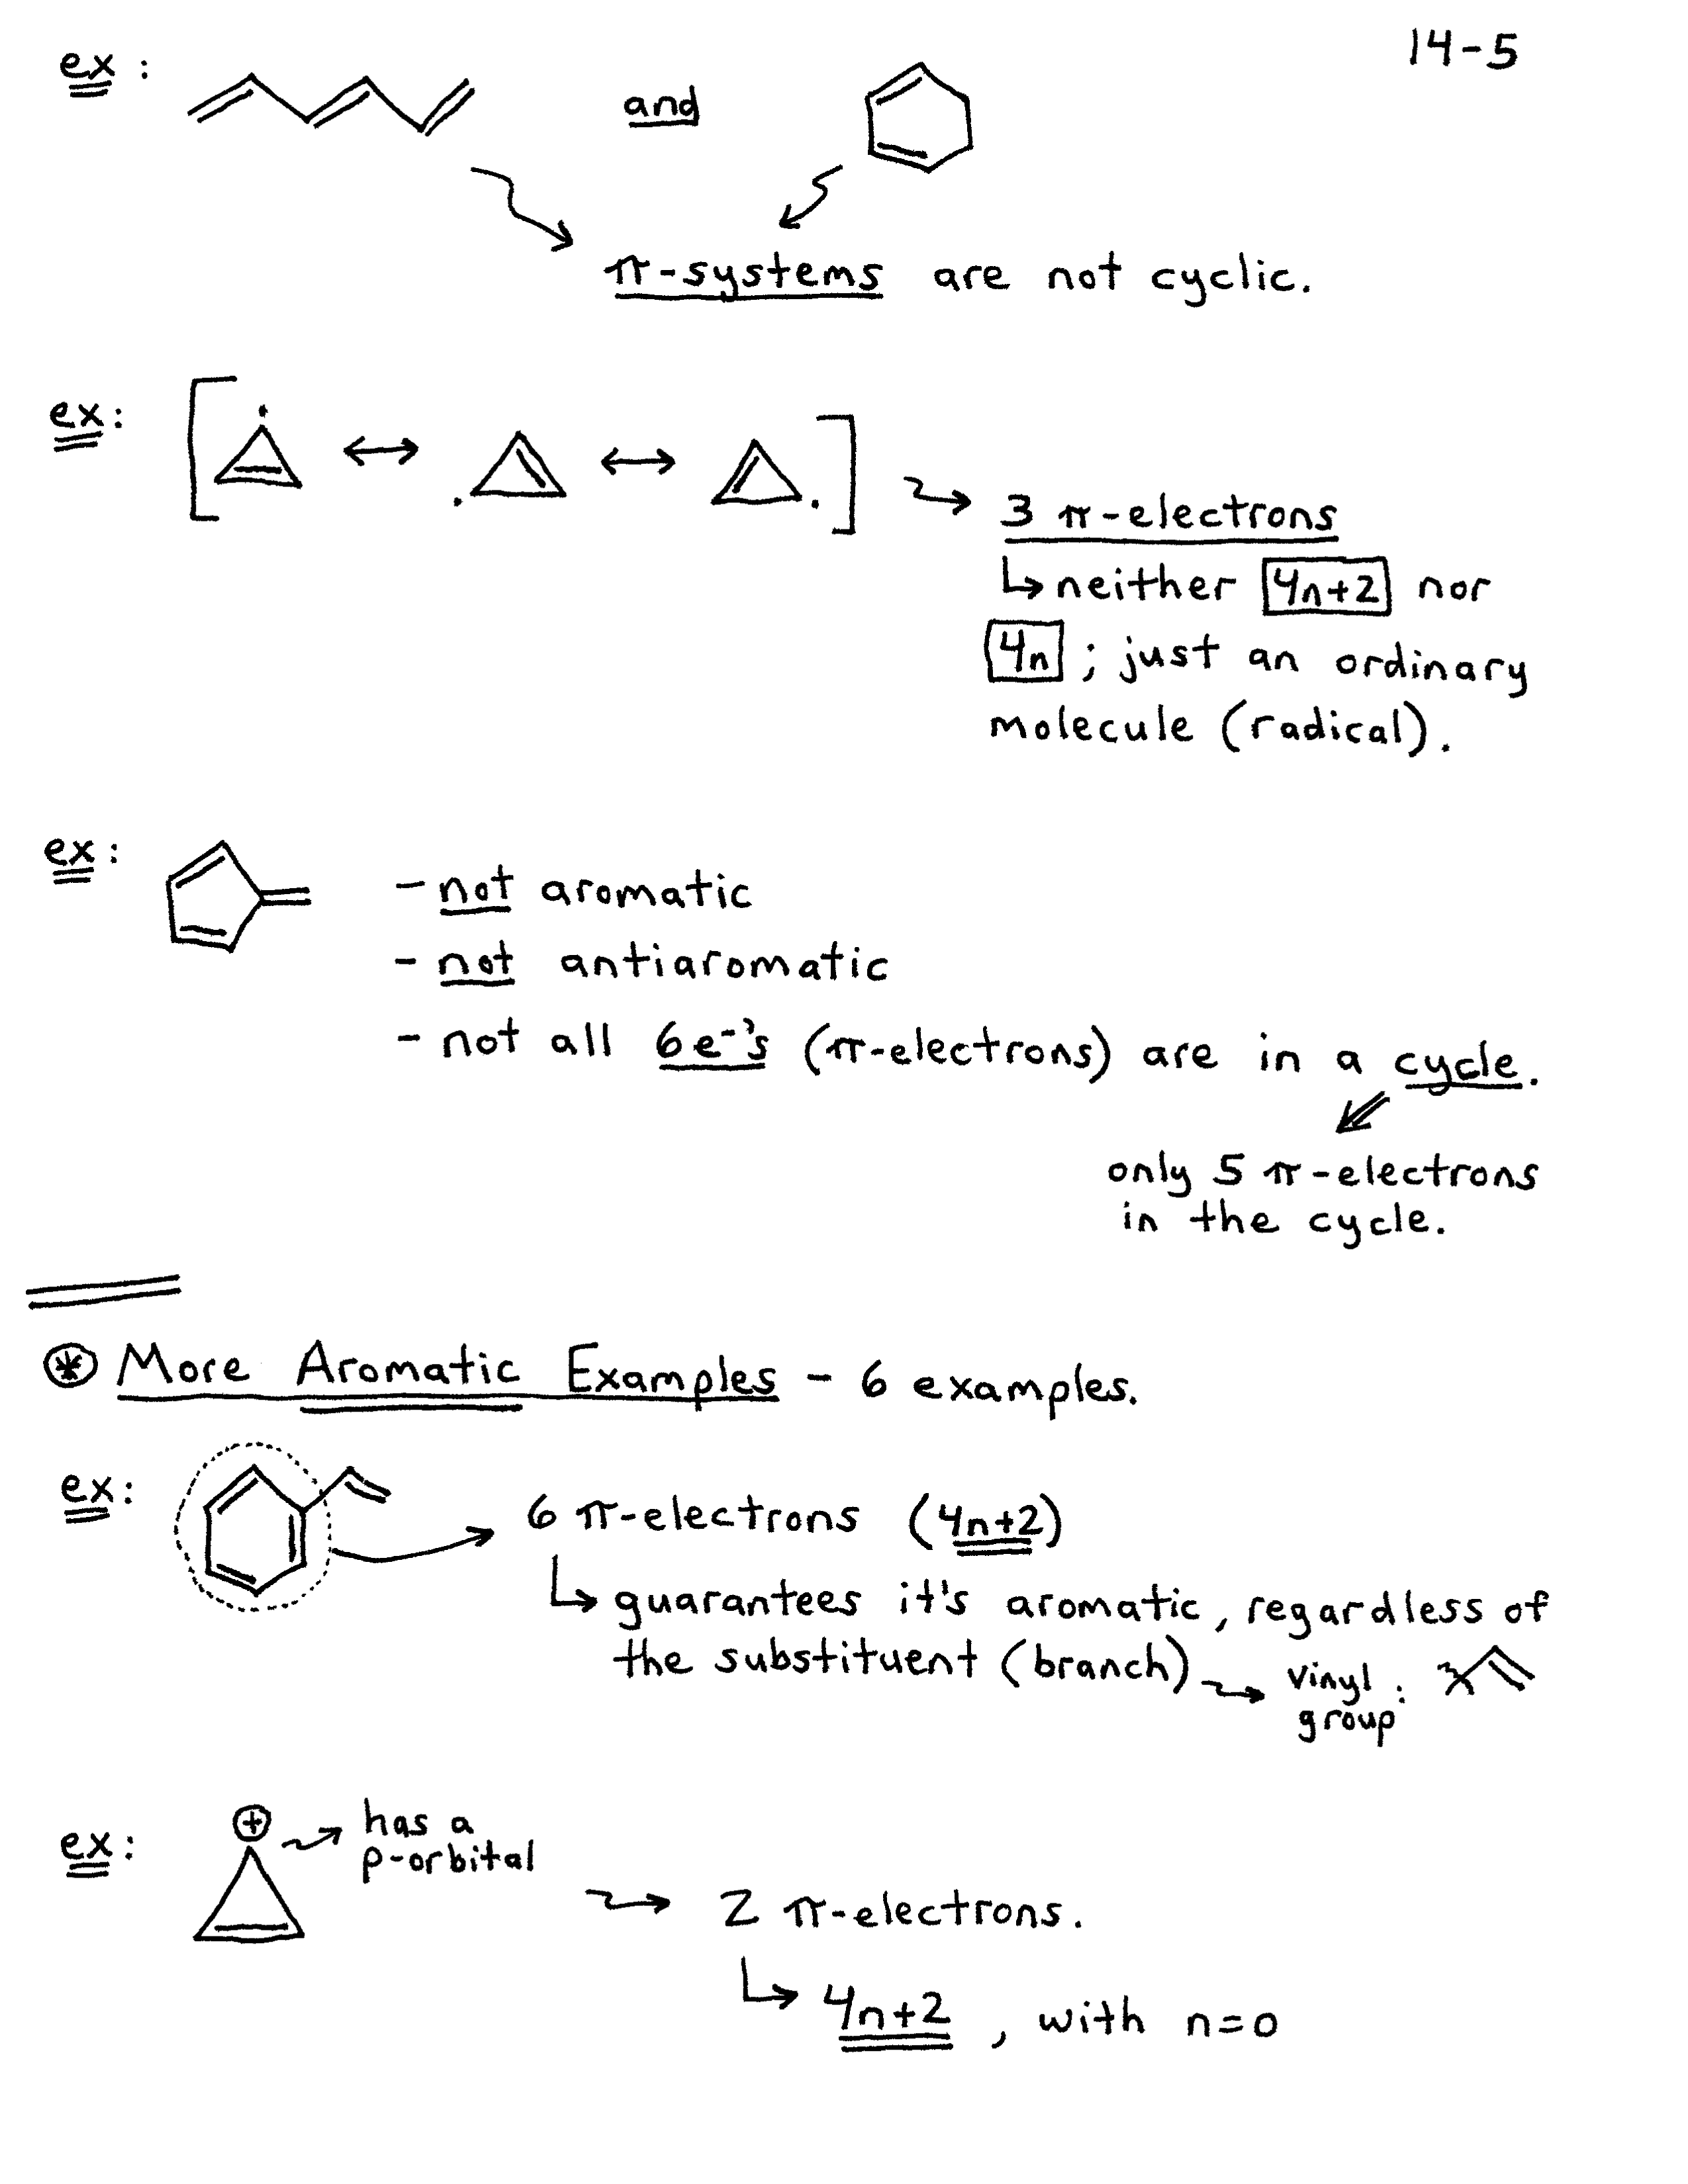 14-5
ex:
and
π-systems are not cyclic.
ex:
3 π-electrons
↳ neither 4n+2 nor
4n ; just an ordinary
molecule (radical).
ex:
- not aromatic
- not antiaromatic
- not all 6e⁻'s (π-electrons) are in a cycle.
only 5 π-electrons
in the cycle.
⊛ More Aromatic Examples - 6 examples.
ex:
6 π-electrons (4n+2)
↳ guarantees it's aromatic, regardless of
the substituent (branch)
vinyl
group:
ex:
⊕
has a
p-orbital
2 π-electrons.
↳ 4n+2 , with n=0